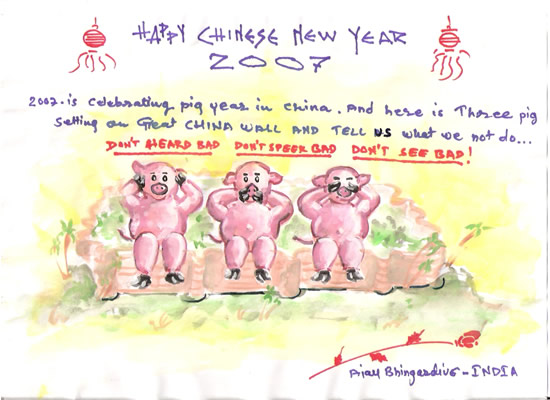 HAPPY CHINESE NEW YEAR
2007
2007. is celebrating pig year in china. And here is Three pig
setting on Great CHINA WALL AND TELL US what we not do...
DON'T HEARD BAD DON'T SPEEK BAD DON'T SEE BAD!
Bhingardive - INDIA